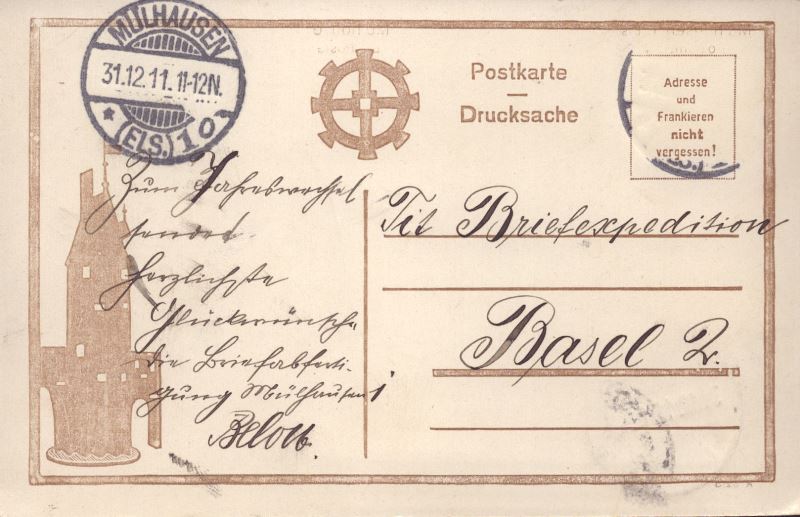 MÜLHAUSEN
31.12.11. 11-12N.
(ELS.) 1 o
Postkarte
Drucksache
Adresse
und
Frankieren
nicht
vergessen!
Zum Jahreswechsel
sendet
herzlichste
Glückwünsche
die Briefabferti-
gung Mülhausen 1
Tit Briefexpedition
Basel 2.